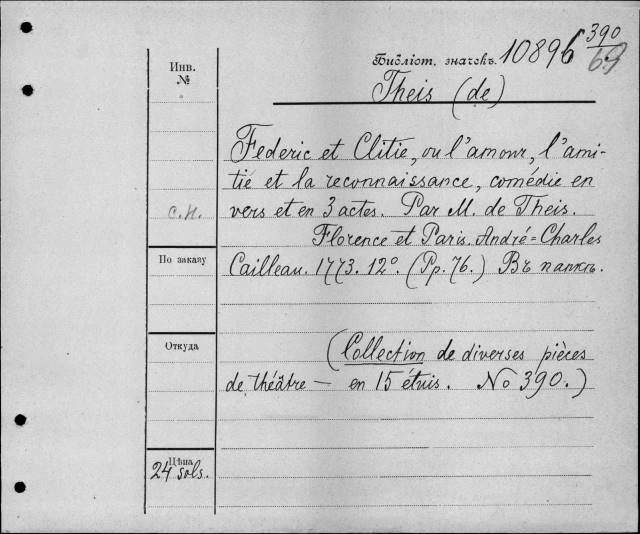 390
Библіот. значекъ. 10896
69
Инв.
№
Theis (de)
Federic et Clitie, ou l'amour, l'ami-
tié et la reconnaissance, comédie en
vers et en 3 actes. Par M. de Theis.
с.н.
Florence et Paris. André=Charles
По заказу
Cailleau. 1773. 12º. (Pp. 76.) Въ папкѣ.
Откуда
(Collection de diverses pièces
de théâtre — en 15 étuis. No 390.)
Цѣна
24 sols.